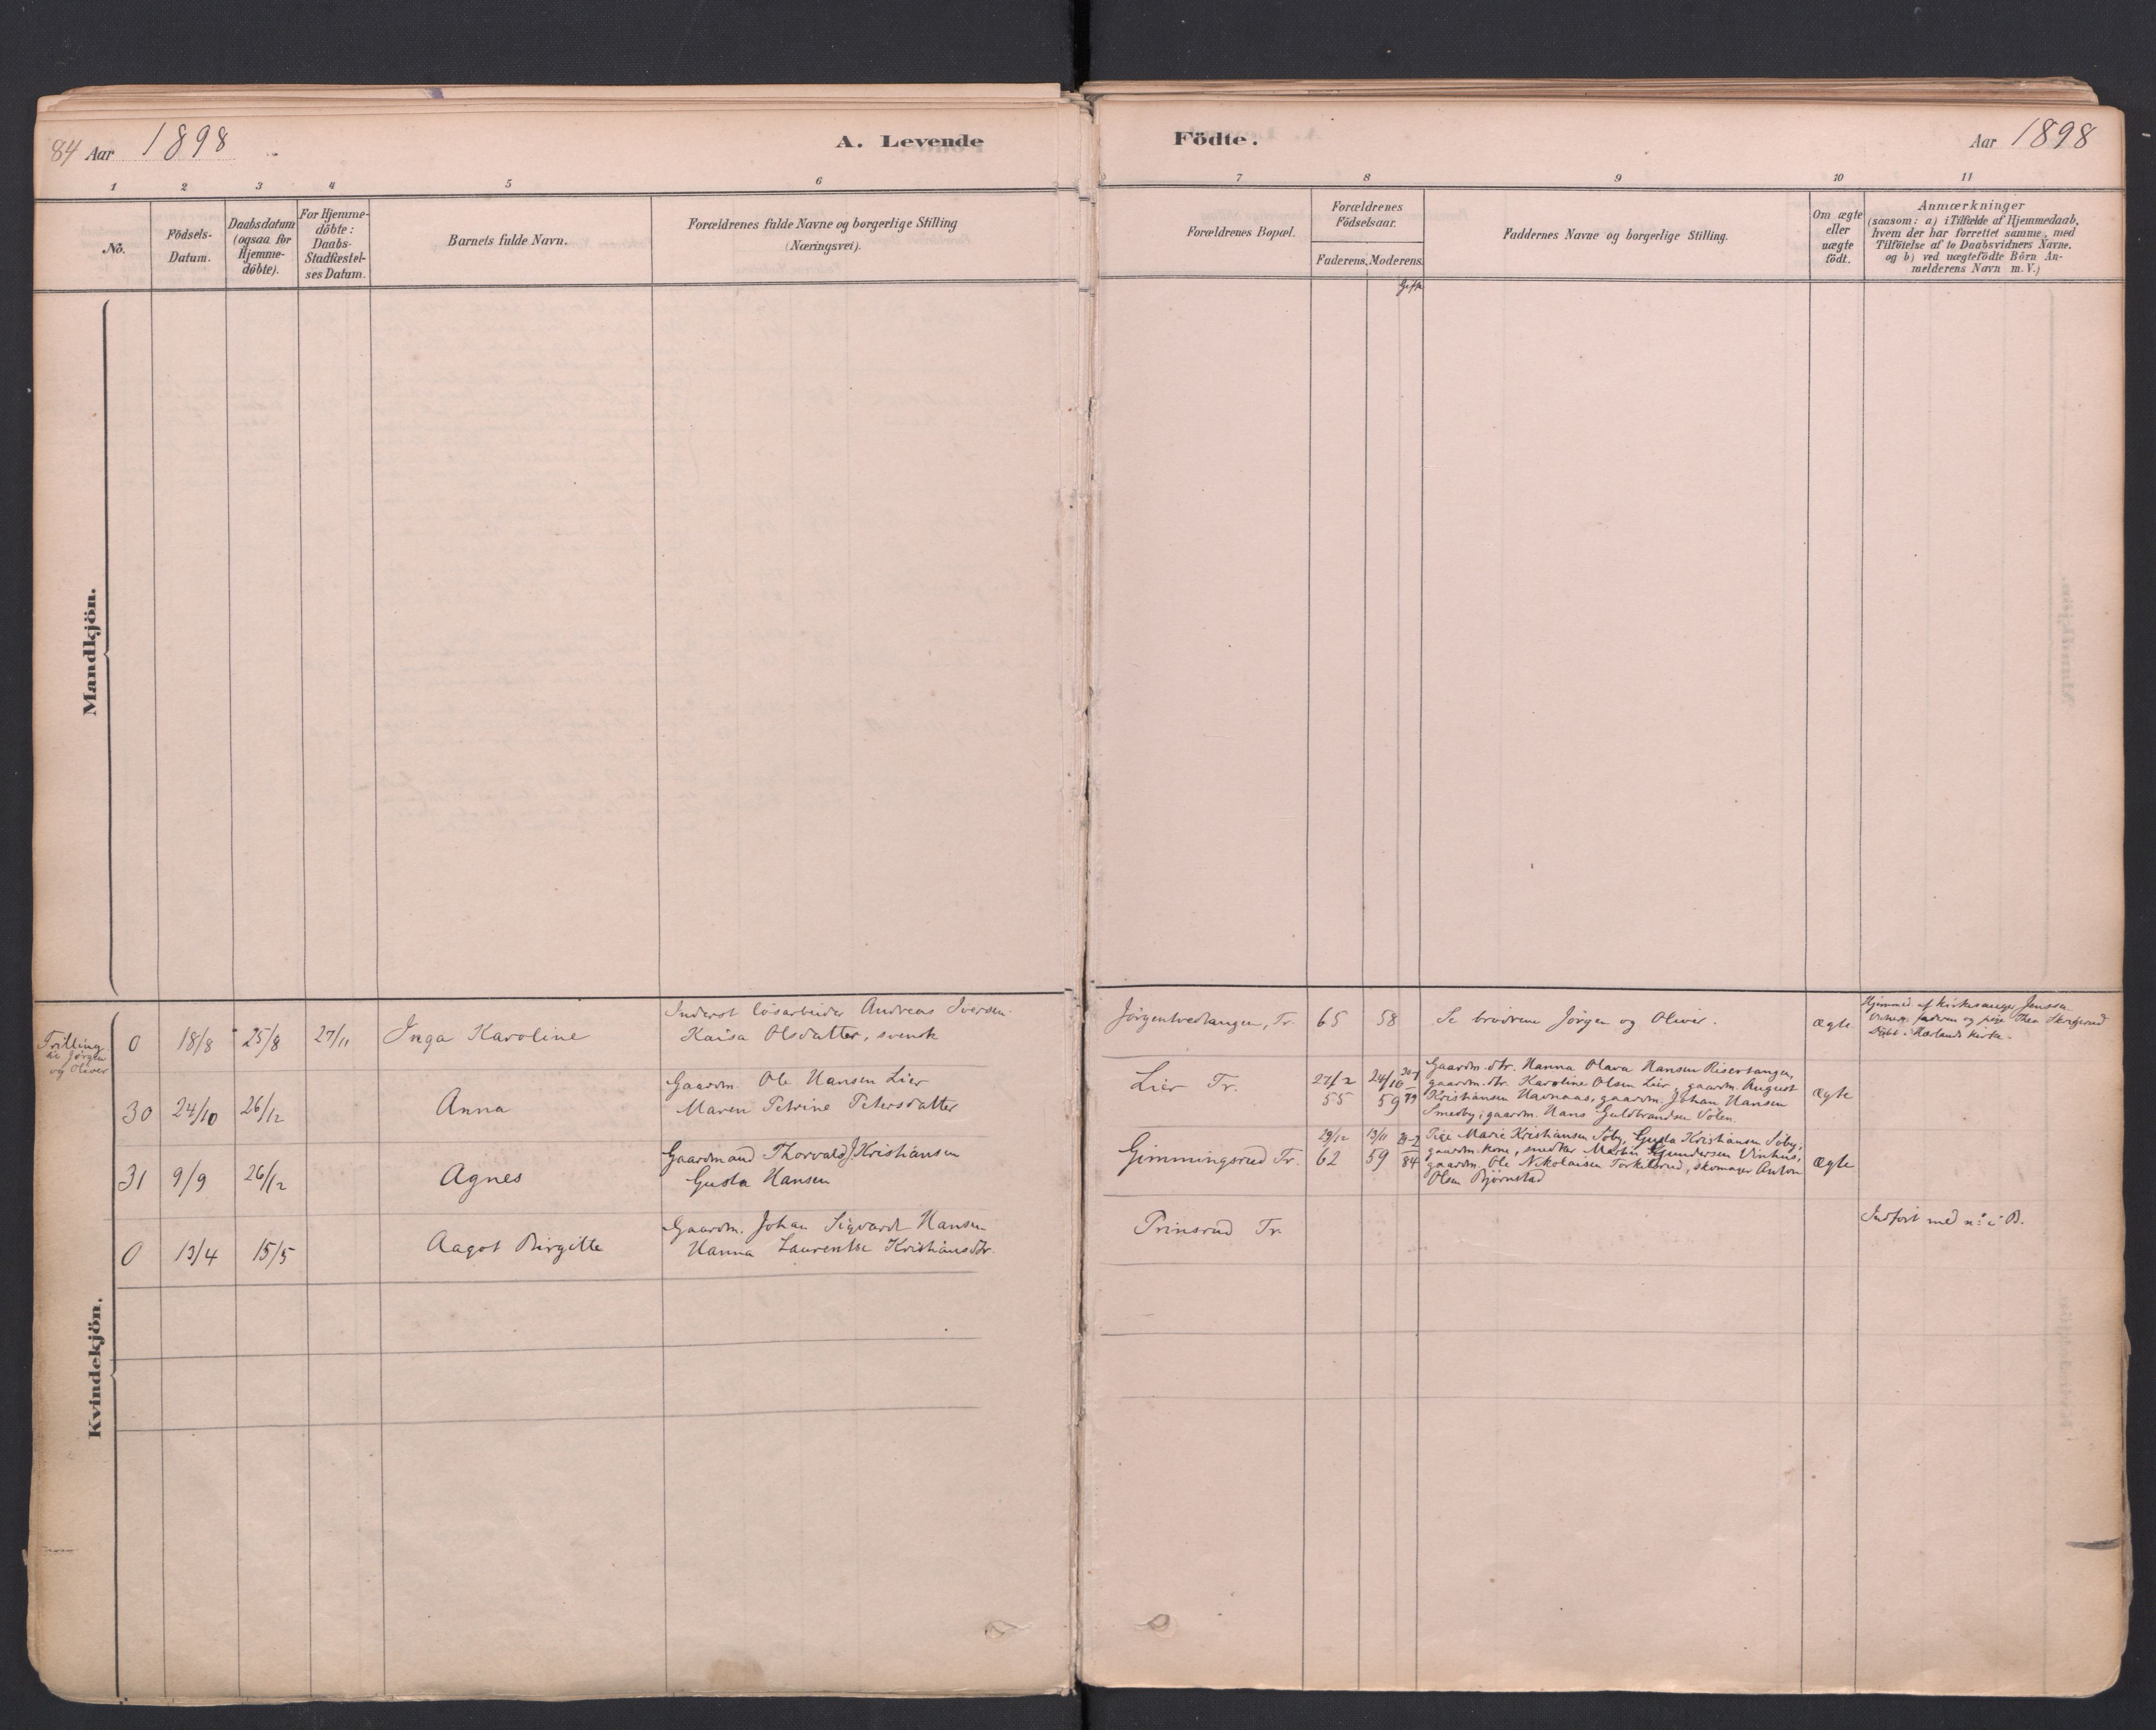 84 Aar 1898
A. Levende
Födte.
Aar 1898
1 2 3 4 5 6 7 8 9 10 11
No.
Födsels-
Datum.
Daabsdatum
(ogsaa for
Hjemme-
döbte).
For Hjemme-
döbte:
Daabs-
Stadfæstel-
ses Datum.
Barnets fulde Navn.
Forældrenes fulde Navne og borgerlige Stilling
(Næringsvei).
Forældrenes Bopæl.
Forældrenes
Födselsaar.
Faderens. Moderens.
Gift
Faddernes Navne og borgerlige Stilling.
Om ægte
eller
uægte
födt.
Anmærkninger
(saasom: a) i Tilfælde af Hjemmedaab,
hvem der har forrettet samme, med
Tilföielse af to Daabsvidners Navne.
og b) ved uægtefödte Börn An-
melderens Navn m. V.)
Mandkjön.
Kvindekjön.
Trilling
Jørgen
og Oliver
0 18/8 25/8 27/11 Inga Karoline
Inderst løsarbeider Andreas Iversen
Kaisa Olsdatter, svensk
Jörgentvedtangen, Tr. 65 58
Se brödrene Jörgen og Oliver.
ægte
Hjemmed. af kirkesanger Jenssen
Vidner: fadren og pige Thea Skrefsrud
Døbt i Hærlands kirke.
30 24/10 26/12 Anna
Gaardm. Ole Hansen Lier
Maren Petrine Petersdatter
Lier Tr.
27/2 24/10
55 59 79
Gaardm. dtr. Hanna Olava Hansen Risertangen,
gaardm. dtr. Karoline Olsen Lier, gaardm. August
Kristiansen Havnaas, gaardm. Johan Hansen
Smedby, gaardm. Hans Guldbrandsen Solen.
ægte
31 9/9 26/12 Agnes
Gaardmand Thorvald J Kristiansen
Gusta Hansen
Gimmingsrud Tr.
29/12 13/11 29-2
62 59 84
Pige Marie Kristiansen Söby, Gusta Kristiansen Söby,
gaardm. kone, snedker Martin Gundersen Vinhus,
gaardm. Ole Nikolaisen Torkelsrud, skomager Anton
Olsen Bjørnstad
ægte
0 13/4 15/5 Aagot Birgitte
Gaardm. Johan Sigvardt Hansen
Hanna Laurentse Kristiansdtr.
Prinsrud Tr.
Indført med no i B.